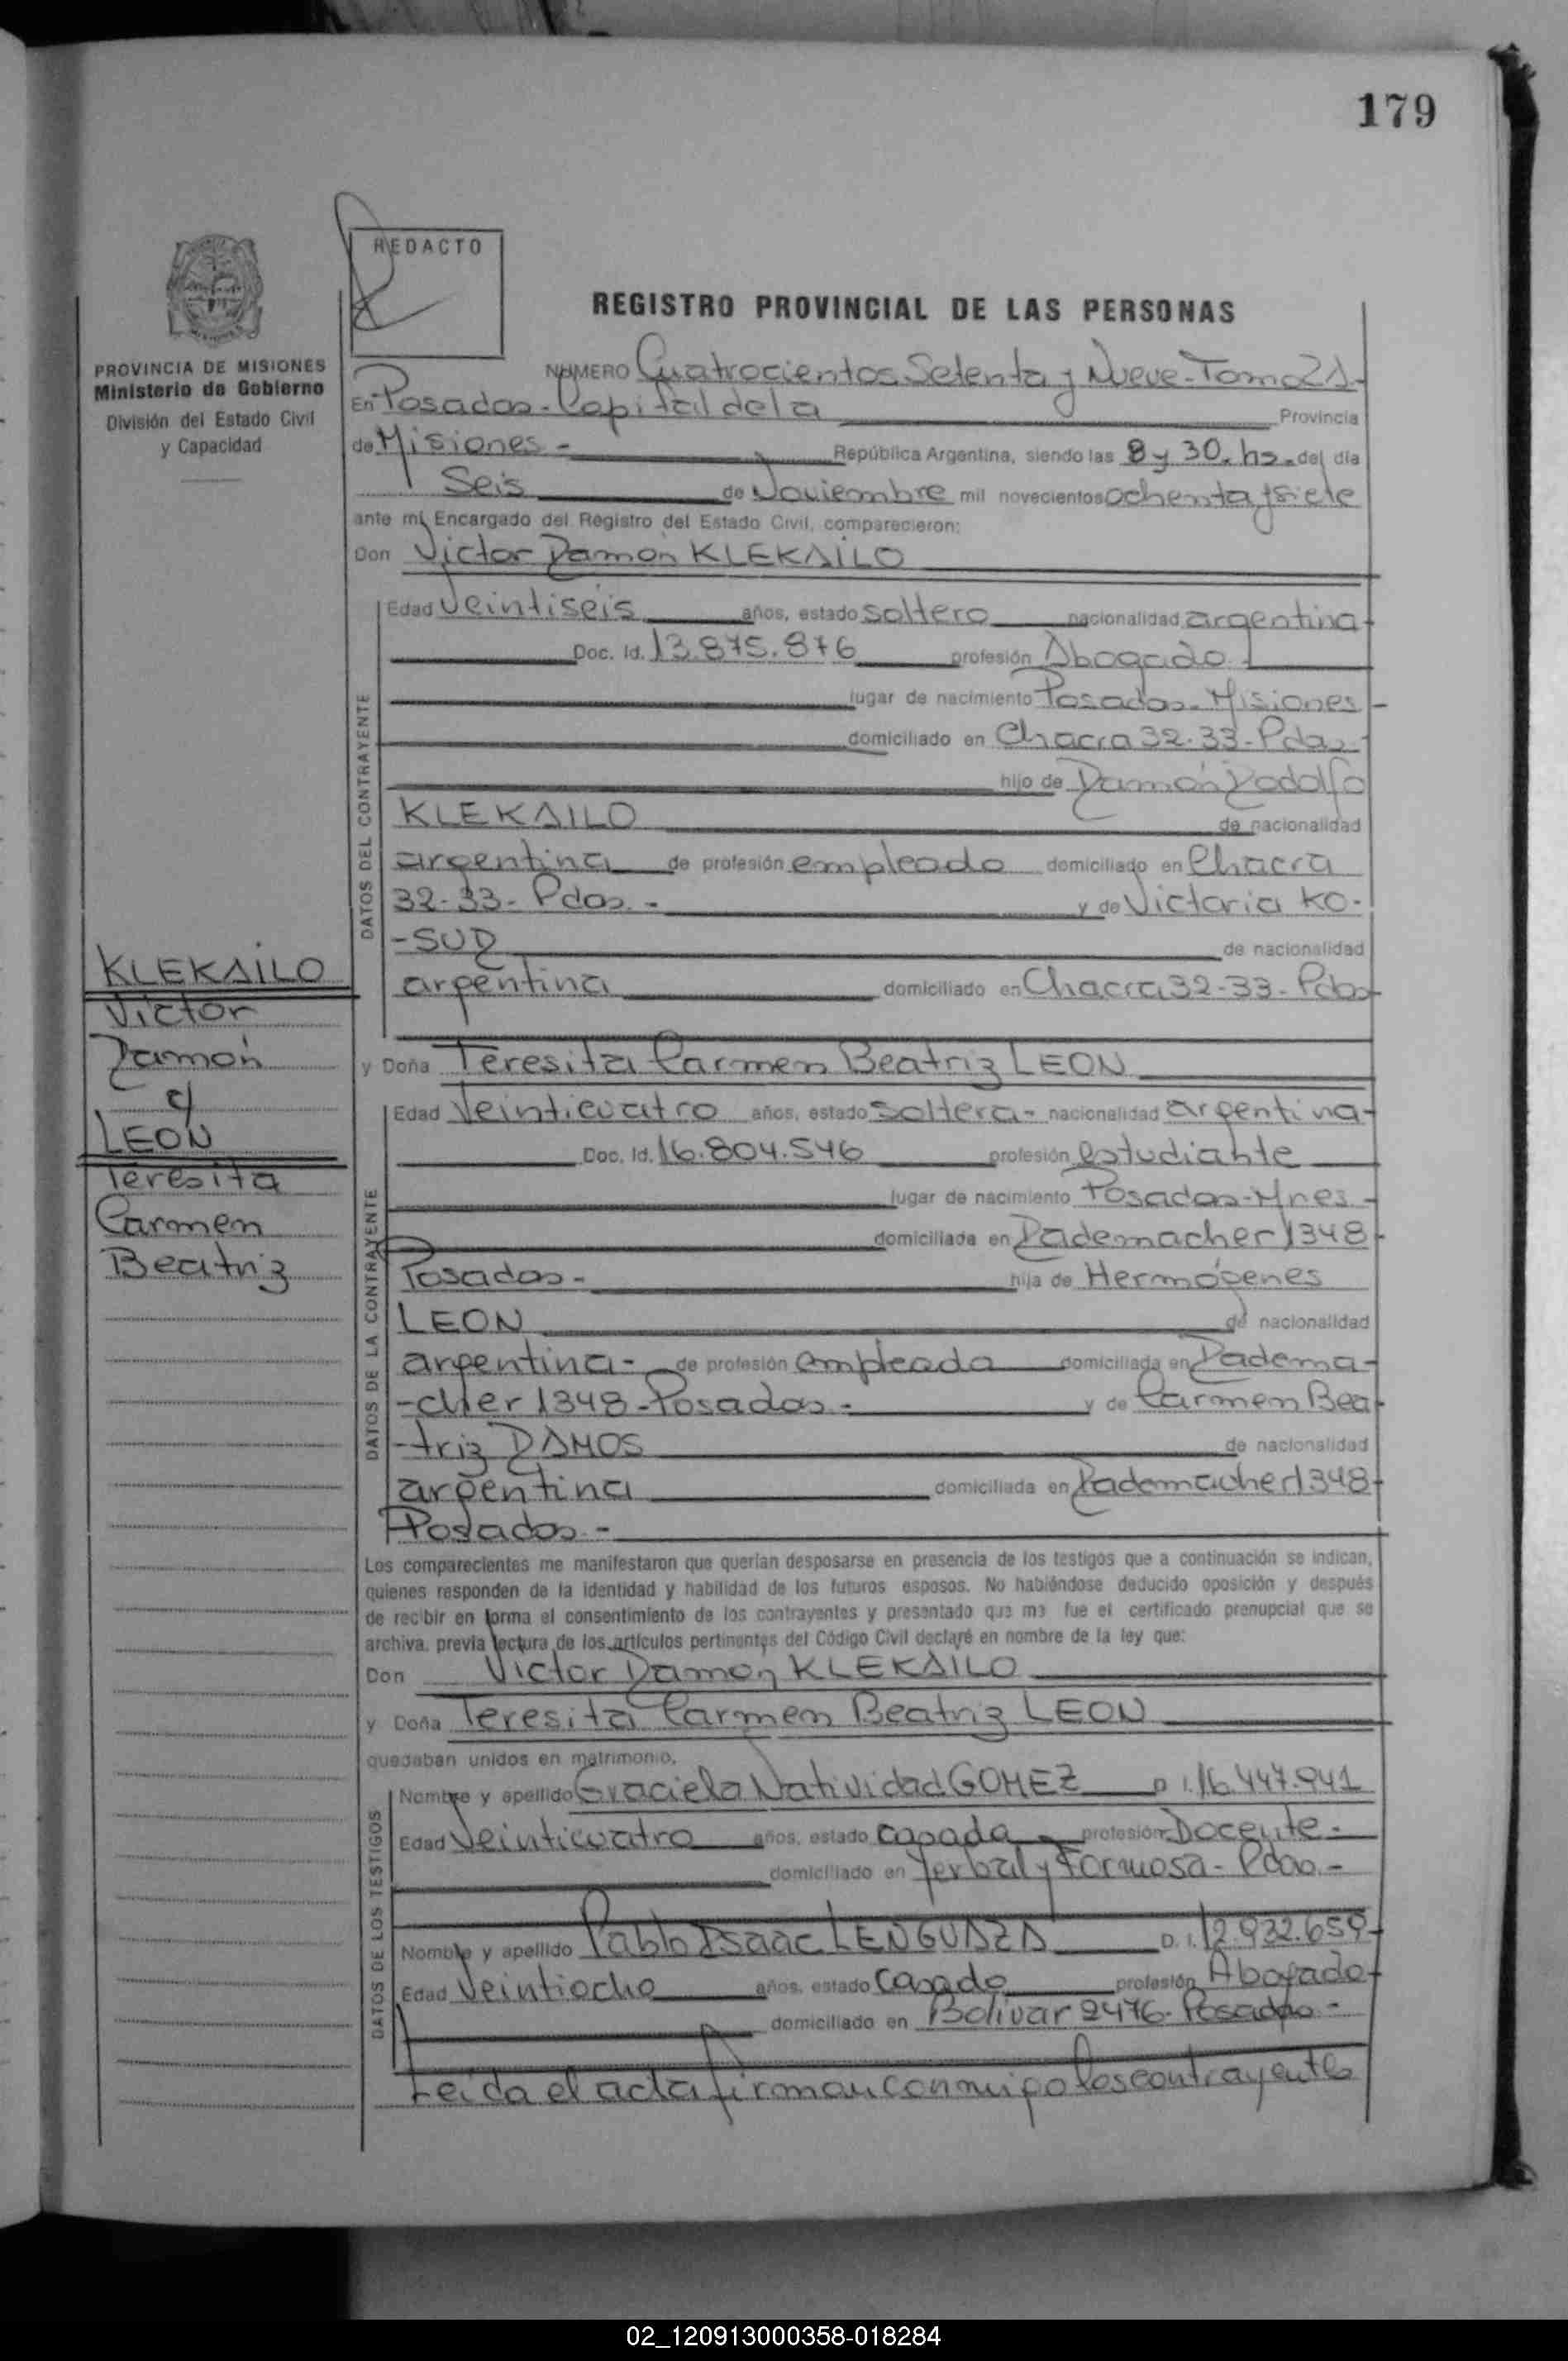 179
REDACTO
REGISTRO PROVINCIAL DE LAS PERSONAS
PROVINCIA DE MISIONES
Ministerio de Gobierno
División del Estado Civil
y Capacidad
NUMERO Cuatrocientos Setenta y Nueve-Tomo 2A-
En Posadas-Capital de la Provincia
de Misiones - República Argentina, siendo las 8 y 30. hs. del día
Seis de Noviembre mil novecientos ochenta y siete
ante mí, Encargado del Registro del Estado Civil, comparecieron:
Don Victor Ramón KLEKAILO
DATOS DEL CONTRAYENTE
Edad Veintiseis años, estado soltero nacionalidad argentina
Doc. Id. 13.875.876 profesión Abogado
lugar de nacimiento Posadas-Misiones
domiciliado en Chacra 32-33-Pdas
hijo de Ramón Rodolfo
KLEKAILO de nacionalidad
argentina de profesión empleado domiciliado en Chacra
32-33-Pdas.- y de Victoria KO-
-SUR de nacionalidad
argentina domiciliado en Chacra 32-33-Pdas
KLEKAILO
Victor
Ramón
c/
LEON
Teresita
Carmen
Beatriz
y Doña Teresita Carmen Beatriz LEON
DATOS DE LA CONTRAYENTE
Edad Veinticuatro años, estado soltera- nacionalidad argentina-
Doc. Id. 16.804.546 profesión estudiante
lugar de nacimiento Posadas-Mnes-
domiciliada en Rademacher 1348
Posadas- hija de Hermógenes
LEON de nacionalidad
argentina- de profesión empleado domiciliada en Radema-
-cher 1348-Posadas- y de Carmen Bea-
-triz RAMOS de nacionalidad
argentina domiciliada en Rademacher 1348-
Posadas-
Los comparecientes me manifestaron que querían desposarse en presencia de los testigos que a continuación se indican,
quienes responden de la identidad y habilidad de los futuros esposos. No habiéndose deducido oposición y después
de recibir en forma el consentimiento de los contrayentes y presentado que me fue el certificado prenupcial que se
archiva, previa lectura de los artículos pertinentes del Código Civil declaré en nombre de la ley que:
Don Victor Ramón KLEKAILO
y Doña Teresita Carmen Beatriz LEON
quedaban unidos en matrimonio.
DATOS DE LOS TESTIGOS
Nombre y apellido Graciela Natividad GOMEZ D. I. 16.447.941
Edad Veinticuatro años, estado casada profesión Docente-
domiciliado en Yerbal y Formosa-Pdas.-
Nombre y apellido Pablo Isaac LENGUAZA D. I. 12.932.659-
Edad Veintiocho años, estado Casado profesión Abogado
domiciliado en Bolivar 2476-Posadas-
Leída el acta firman conmigo los contrayentes
02_120913000358-018284